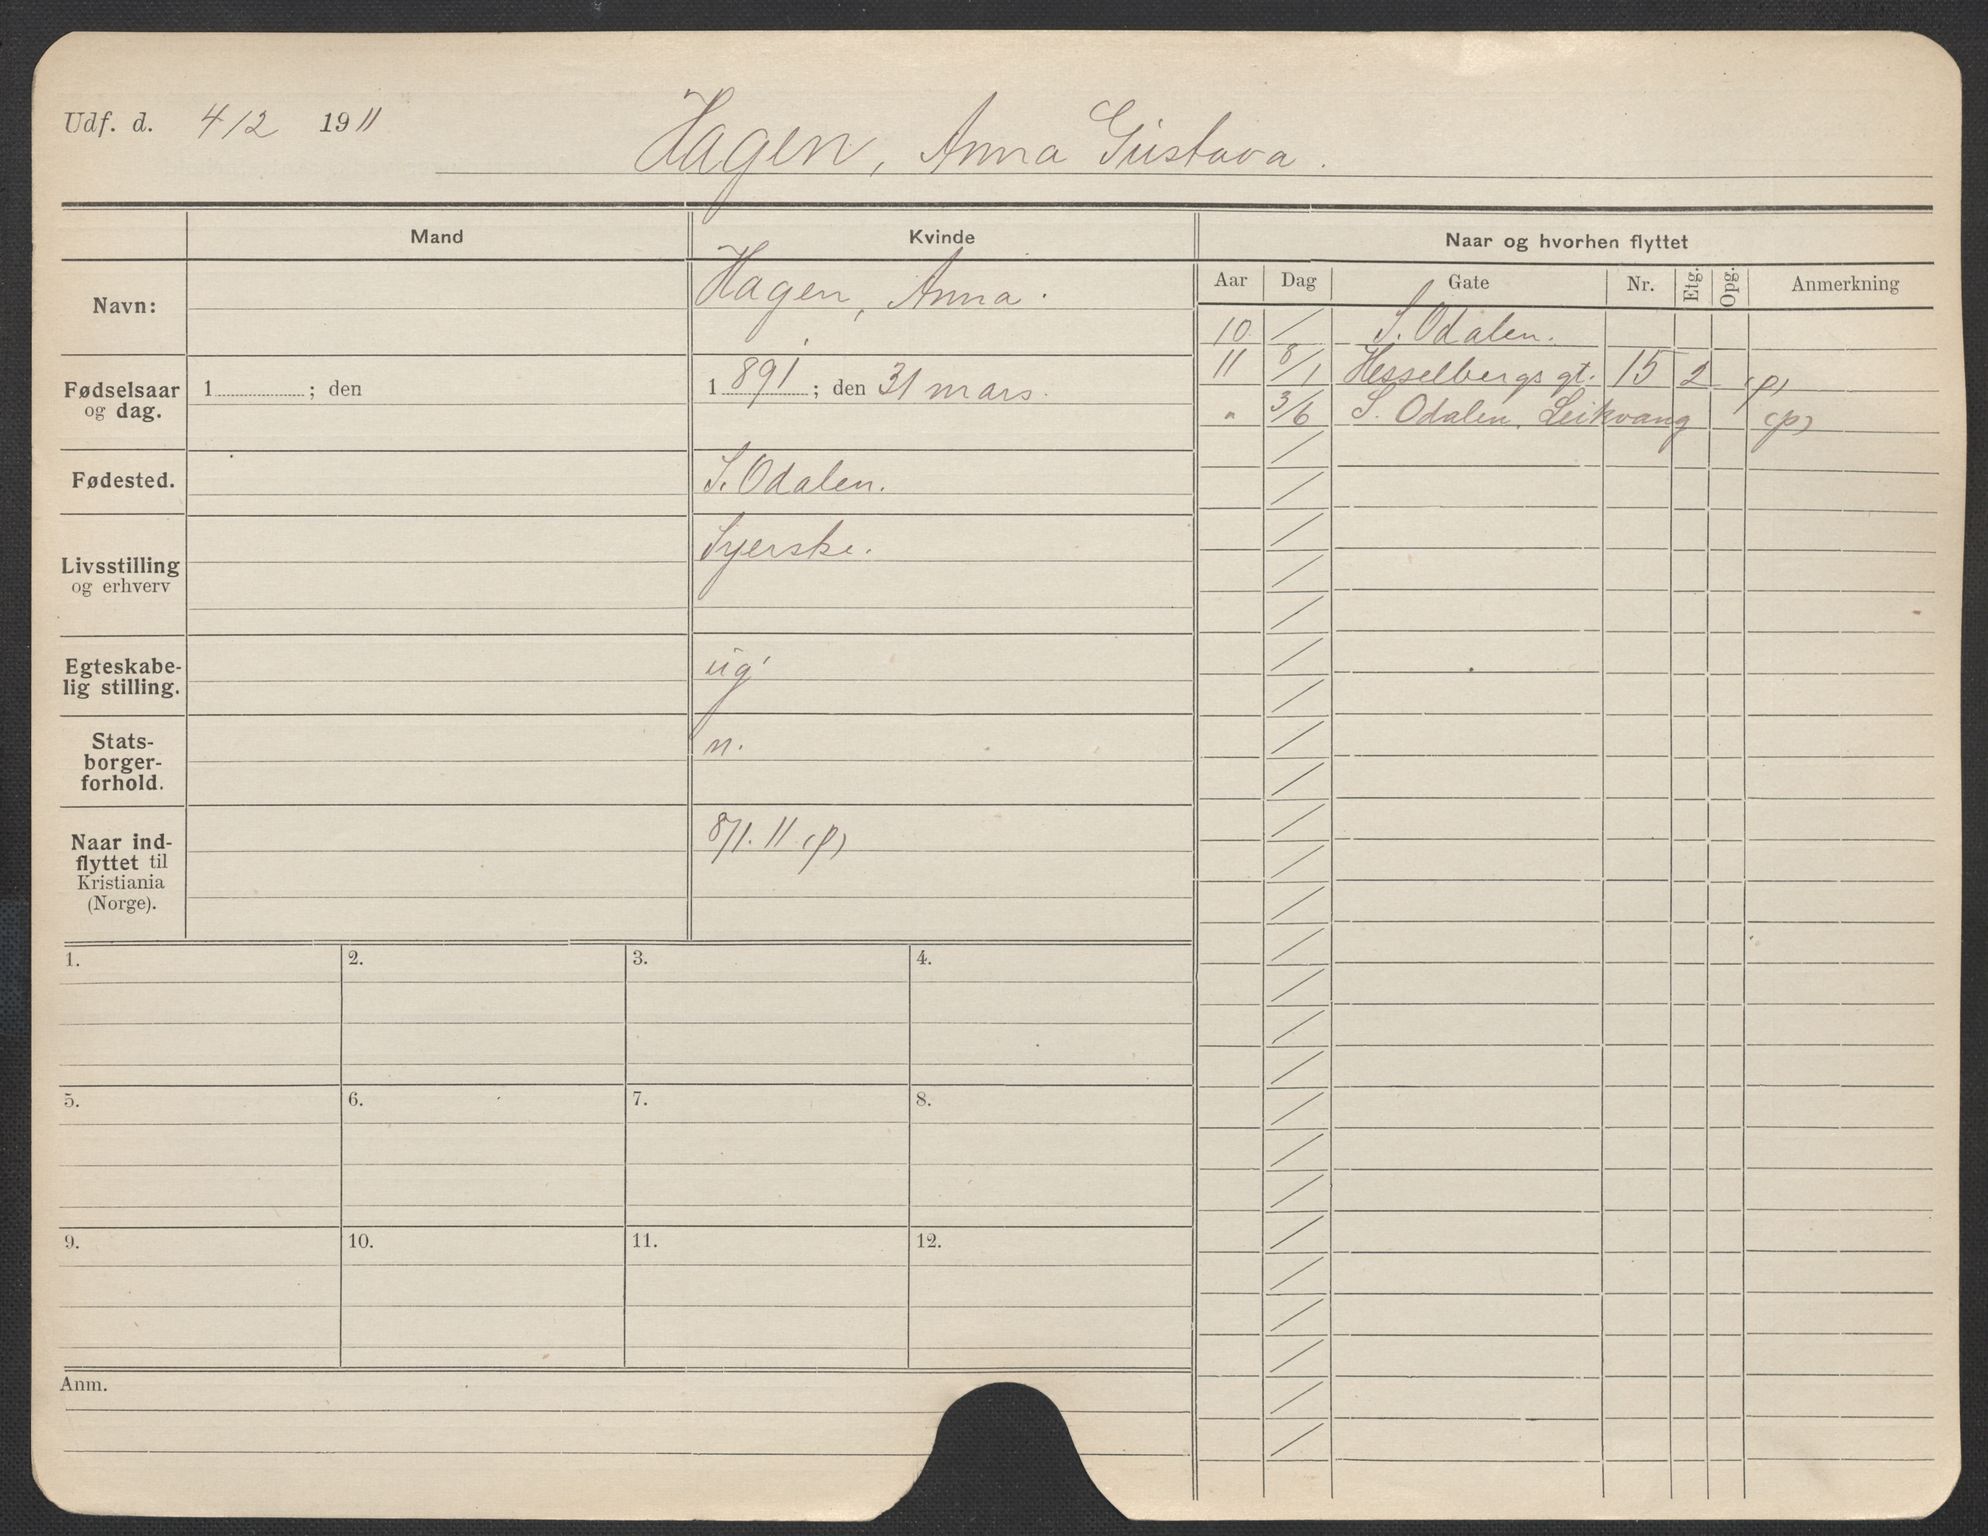 Udf. d. 4/2 1911
Hagen, Anna Gustava.
Mand
Kvinde
Naar og hvorhen flyttet
Aar Dag Gate Nr. Etg. Opg. Anmerkning
Navn:
Hagen, Anna.
Fødselsaar
og dag.
1 ; den
1 891 ; den 31 mars.
Fødested.
S. Odalen.
Livsstilling
og erhverv
Syerske.
Egteskabe-
lig stilling.
ug.
Stats-
borger-
forhold.
n.
Naar ind-
flyttet til
Kristiania
(Norge).
8/1. 11 (p)
10 / S. Odalen.
11 8/1 Hesselbergs gt. 15 2 (p)
" 3/6 S. Odalen, Leikvang (p)
1. 2. 3. 4.
5. 6. 7. 8.
9. 10. 11. 12.
Anm.